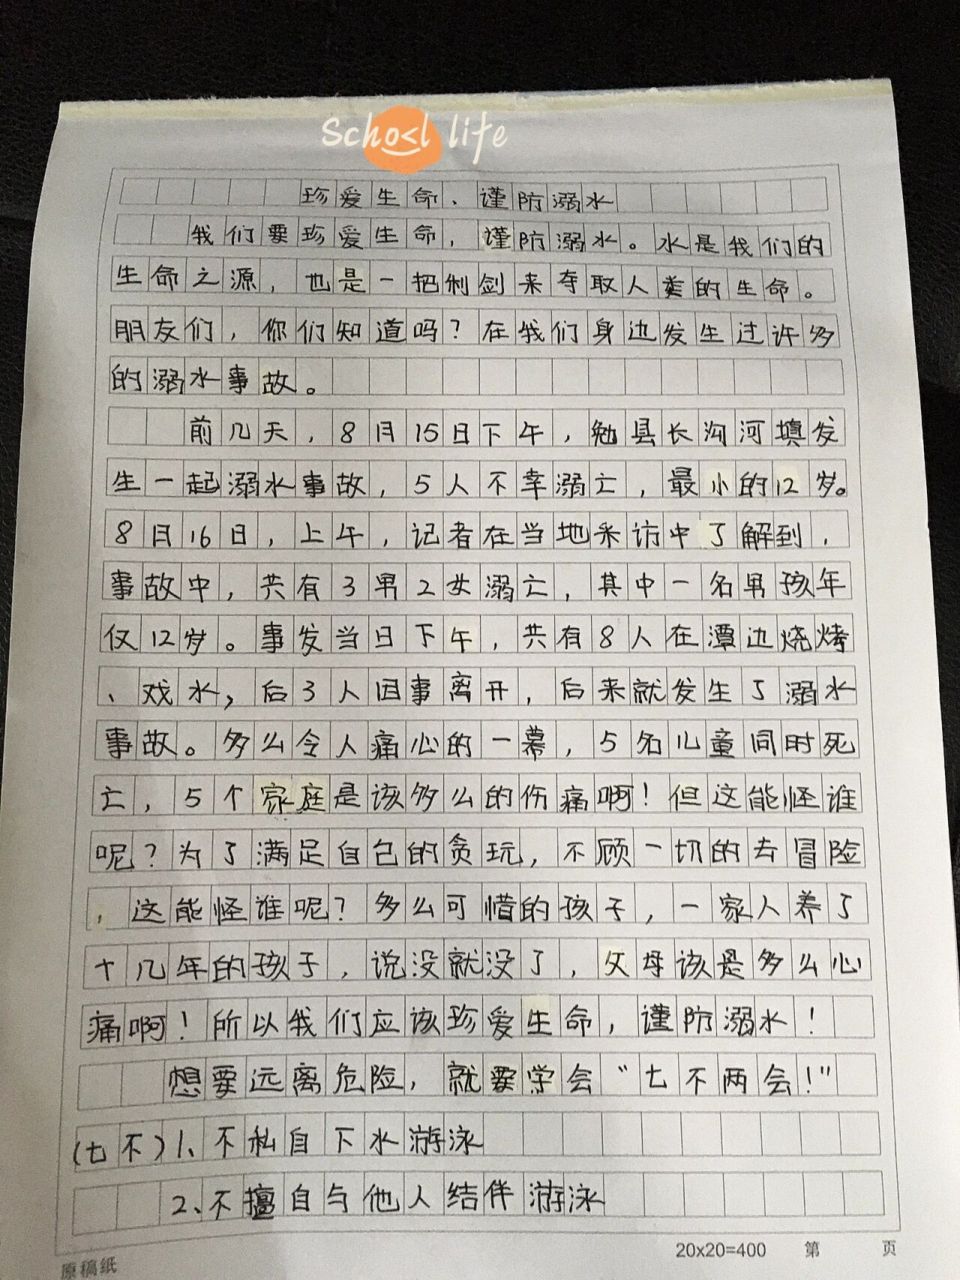 School life
珍爱生命、谨防溺水
我们要珍爱生命，谨防溺水。水是我们的
生命之源，也是一把利剑来夺取人类的生命。
朋友们，你们知道吗？在我们身边发生过许多
的溺水事故。
前几天，8月15日下午，勉县长沟河填发
生一起溺水事故，5人不幸溺亡，最小的12岁。
8月16日，上午，记者在当地采访中了解到，
事故中，共有3男2女溺亡，其中一名男孩年
仅12岁。事发当日下午，共有8人在潭边烧烤
、戏水，后3人因事离开，后来就发生了溺水
事故。多么令人痛心的一幕，5名儿童同时死
亡，5个家庭是该多么的伤痛啊！但这能怪谁
呢？为了满足自己的贪玩，不顾一切的去冒险
，这能怪谁呢？多么可惜的孩子，一家人养了
十几年的孩子，说没就没了，父母该是多么心
痛啊！所以我们应该珍爱生命，谨防溺水！
想要远离危险，就要学会“七不两会！”
(七不)1、不私自下水游泳
2、不擅自与他人结伴游泳
20x20=400 第 页
原稿纸